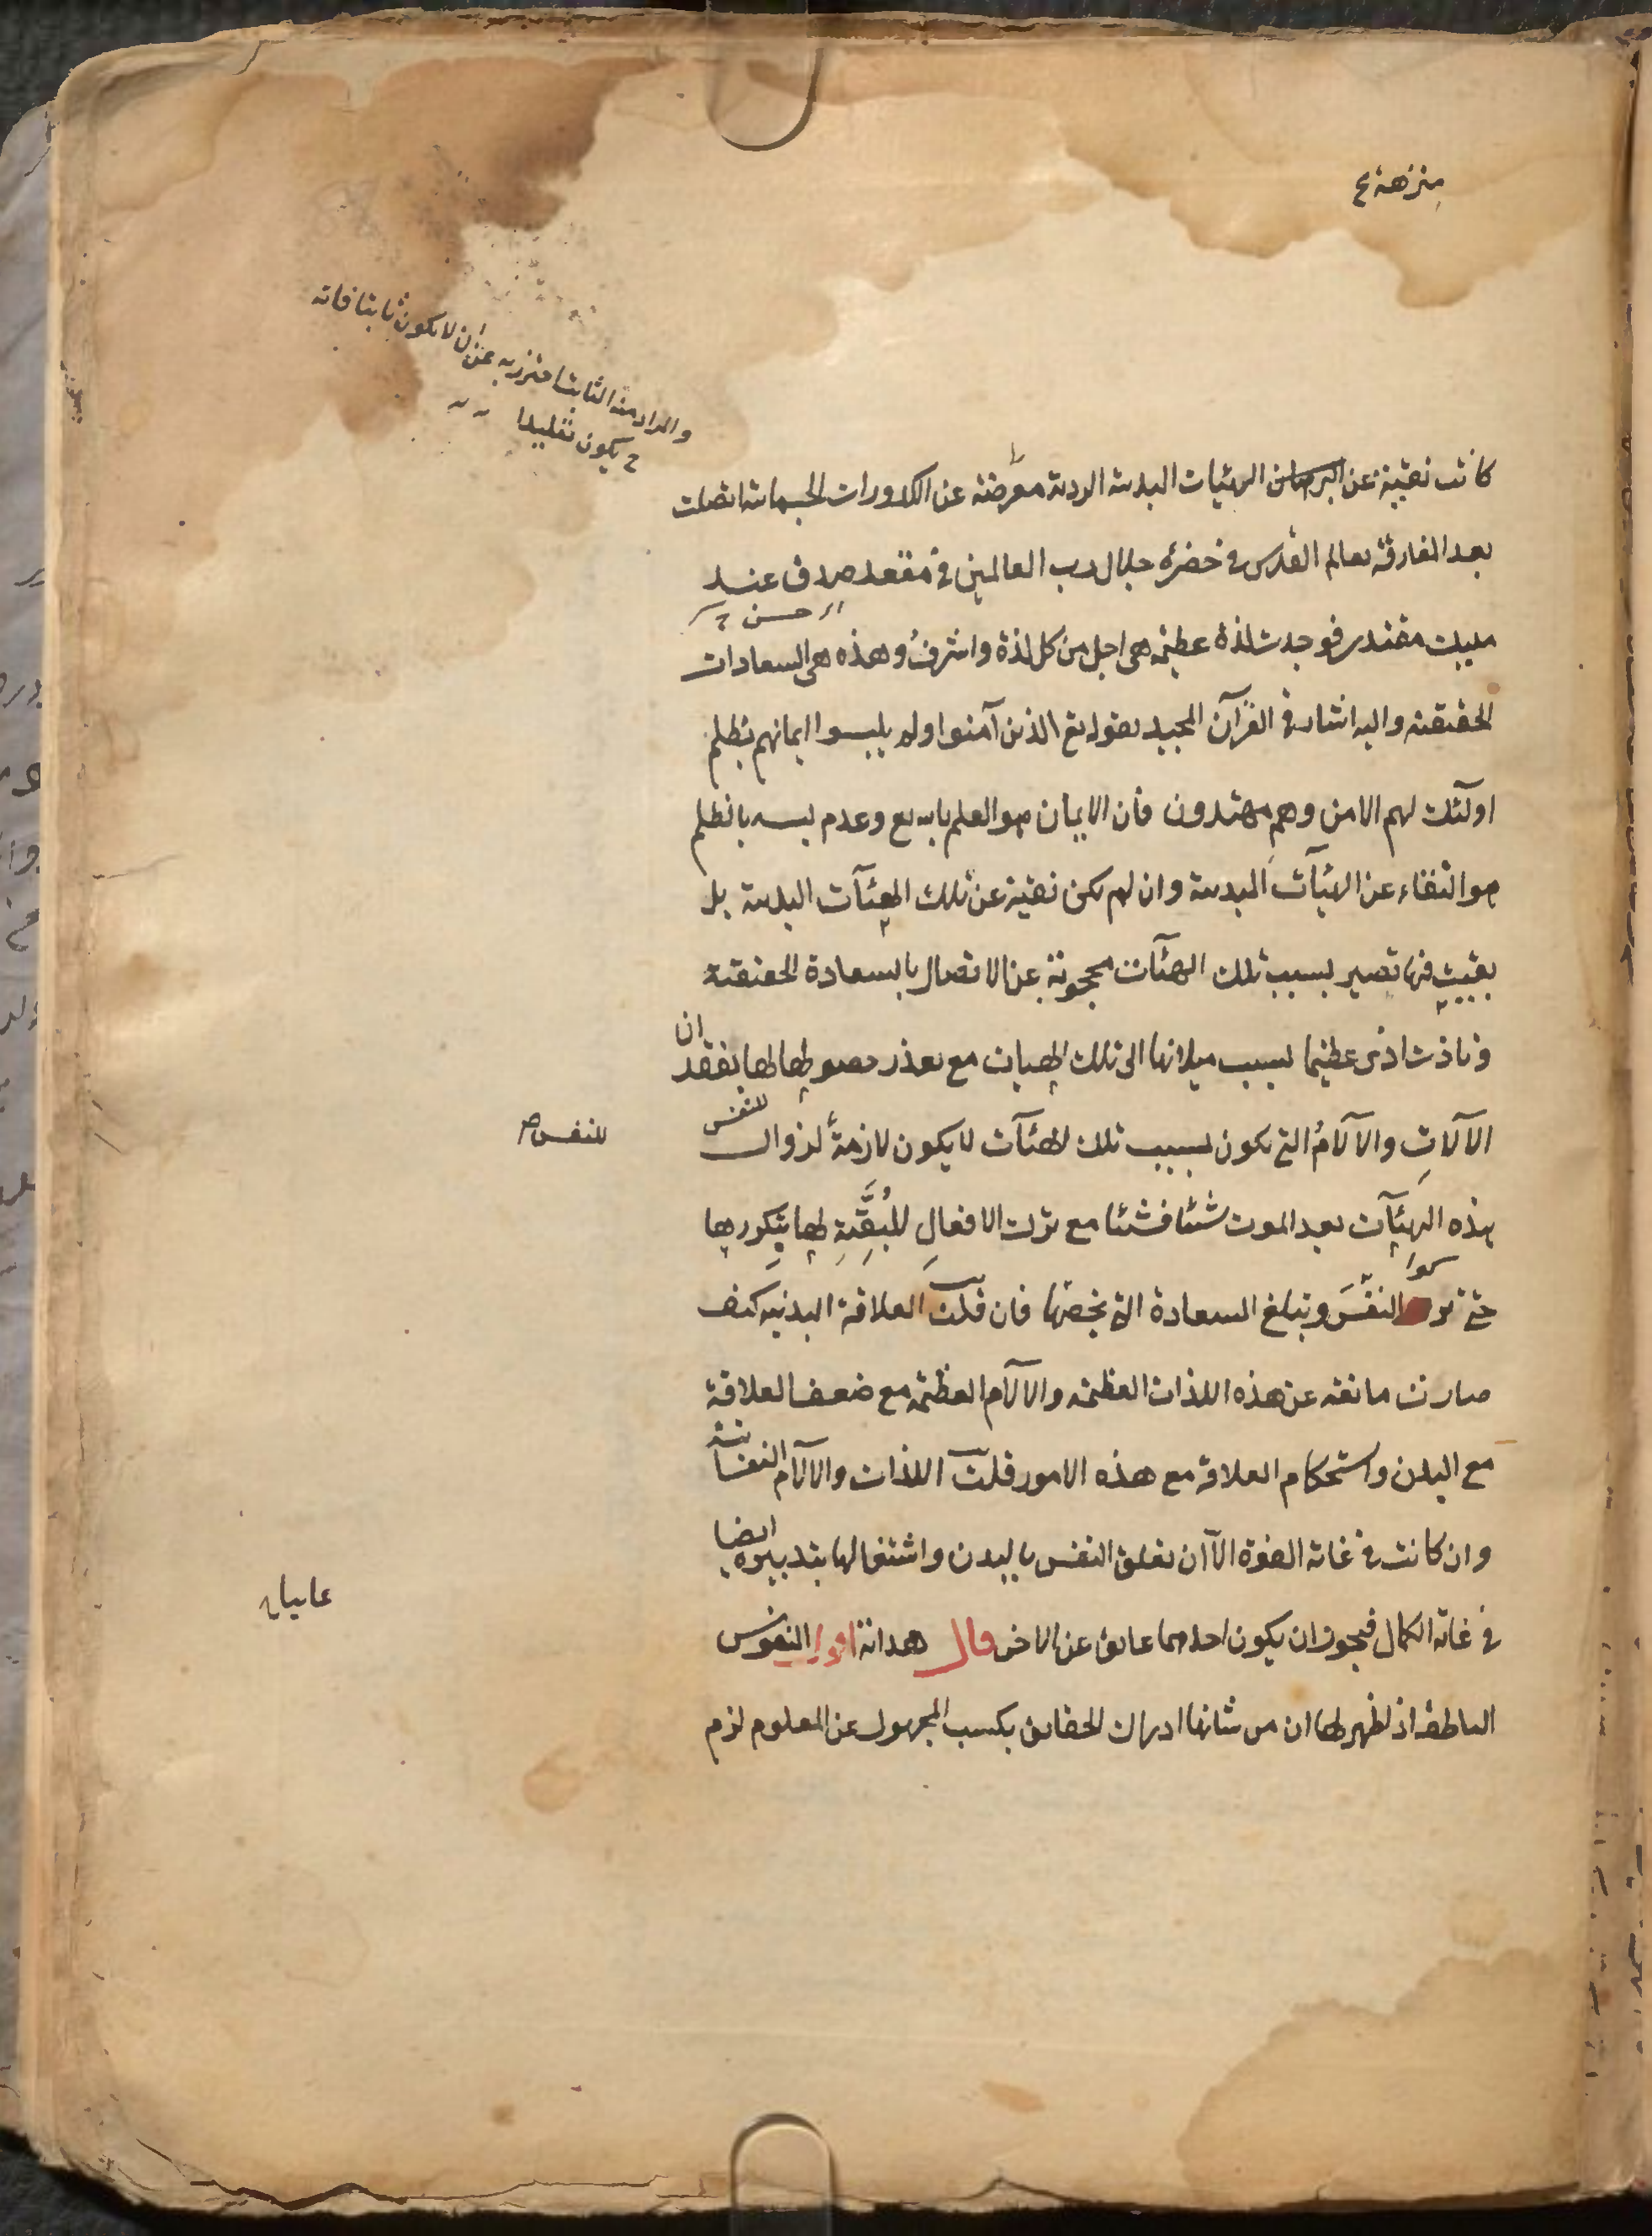 منزهة ع
والمراد من الثابت احترز به عن ان لا يكون ثابتا فانه
ح يكون تقليدا
كانت نقية عن الهيئات البدنية الردية معرضة عن الكدورات الجسمانية اتصلت
بعد المفارقة بعالم القدس في حضرة جلال رب العالمين في مقعد صدق عند
مليك مقتدر فوجدت لذة عظيمة هي اجل من كل لذة واشرف وهذه هي السعادات
الحقيقية واليه اشار في القرآن المجيد بقوله تع الذين آمنوا ولم يلبسوا ايمانهم بظلم
اولئك لهم الامن وهم مهتدون فان الايمان هو العلم بالله تع وعدم لبسه بالظلم
هو النقاء عن الهيآت البدنية وان لم تكن نقية عن تلك الهيئآت البدنية بل
بقيت فيها تصير بسبب تلك الهئآت محجوبة عن الاتصال بالسعادة الحقيقية
وتاذت اذى عظيما بسبب ميلانها الى تلك الهيات مع تعذر حصولها لها بفقدان
الآلات والآلام التي تكون بسبب تلك الهئآت لا يكون لازمة للنفس لزوال
للنفس ص
هذه الهيئآت بعد الموت شيئا فشيئا مع ترك الافعال المبقية لها بتكررها
حتى تزكوا النفس وتبلغ السعادة التي تخصها فان قلت العلاقة البدنية كيف
صارت مانعة عن هذه اللذات العظيمة والآلام العظيمة مع ضعف العلاقة
مع البدن واستحكام العلاقة مع هذه الامور قلت اللذات والآلام النفسانية
وان كانت في غاية القوة الا ان تعلق النفس بالبدن واشتغالها بتدبيره ايضا
في غاية الكمال فيجوز ان يكون احدهما عايق عن الاخر قال هداية النفوس
عايقا
الناطقة اذ ظهر لها ان من شانها ادراك الحقايق بكسب المجهول عن المعلوم لزم